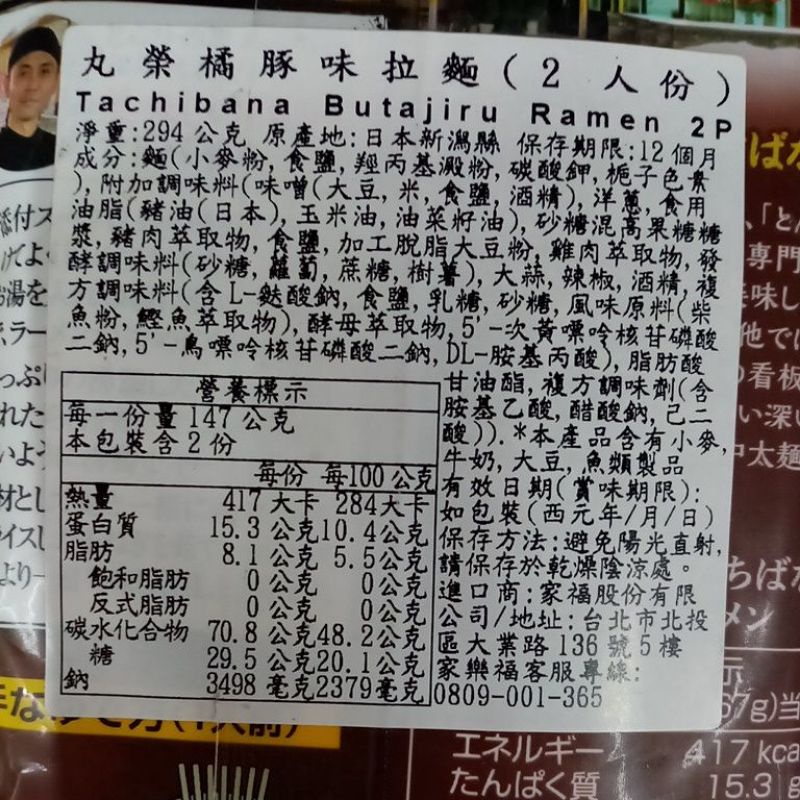 丸榮橘豚味拉麵(2人份)
Tachibana Butajiru Ramen 2P
淨重:294公克 原產地:日本新潟縣 保存期限:12個月
成分:麵(小麥粉,食鹽,羥丙基澱粉,碳酸鉀,梔子色素
),附加調味料(味噌(大豆,米,食鹽,酒精),洋蔥,食用
油脂(豬油(日本),玉米油,油菜籽油),砂糖混高果糖糖
漿,豬肉萃取物,食鹽,加工脫脂大豆粉,雞肉萃取物,發
酵調味料(砂糖,蘿蔔,蔗糖,樹薯),大蒜,辣椒,酒精,複
方調味料(含L-麩酸鈉,食鹽,乳糖,砂糖,風味原料(柴
魚粉,鰹魚萃取物),酵母萃取物,5'-次黃嘌呤核苷磷酸
二鈉,5'-鳥嘌呤核苷磷酸二鈉,DL-胺基丙酸),脂肪酸
甘油酯,複方調味劑(含
胺基乙酸,醋酸鈉,己二
酸)).*本產品含有小麥,
牛奶,大豆,魚類製品
有效日期(賞味期限):
如包裝(西元年/月/日)
保存方法:避免陽光直射,
請保存於乾燥陰涼處。
進口商:家福股份有限
公司/地址:台北市北投
區大業路136號5樓
家樂福客服專線:
0809-001-365
營養標示
每一份量147公克
本包裝含2份
每份 每100公克
熱量 417大卡 284大卡
蛋白質 15.3公克 10.4公克
脂肪 8.1公克 5.5公克
飽和脂肪 0公克 0公克
反式脂肪 0公克 0公克
碳水化合物 70.8公克 48.2公克
糖 29.5公克 20.1公克
鈉 3498毫克 2379毫克
添付ス
げてよ
お湯を
ラー
っぷり
れた
いよう
材とし
イスし
より
ばな
、「とん
専門
美味し
他では
看板
い深い
中太麺
ちばな
メン
示
67g)当
エネルギー 417 kca
たんぱく質 15.3 g